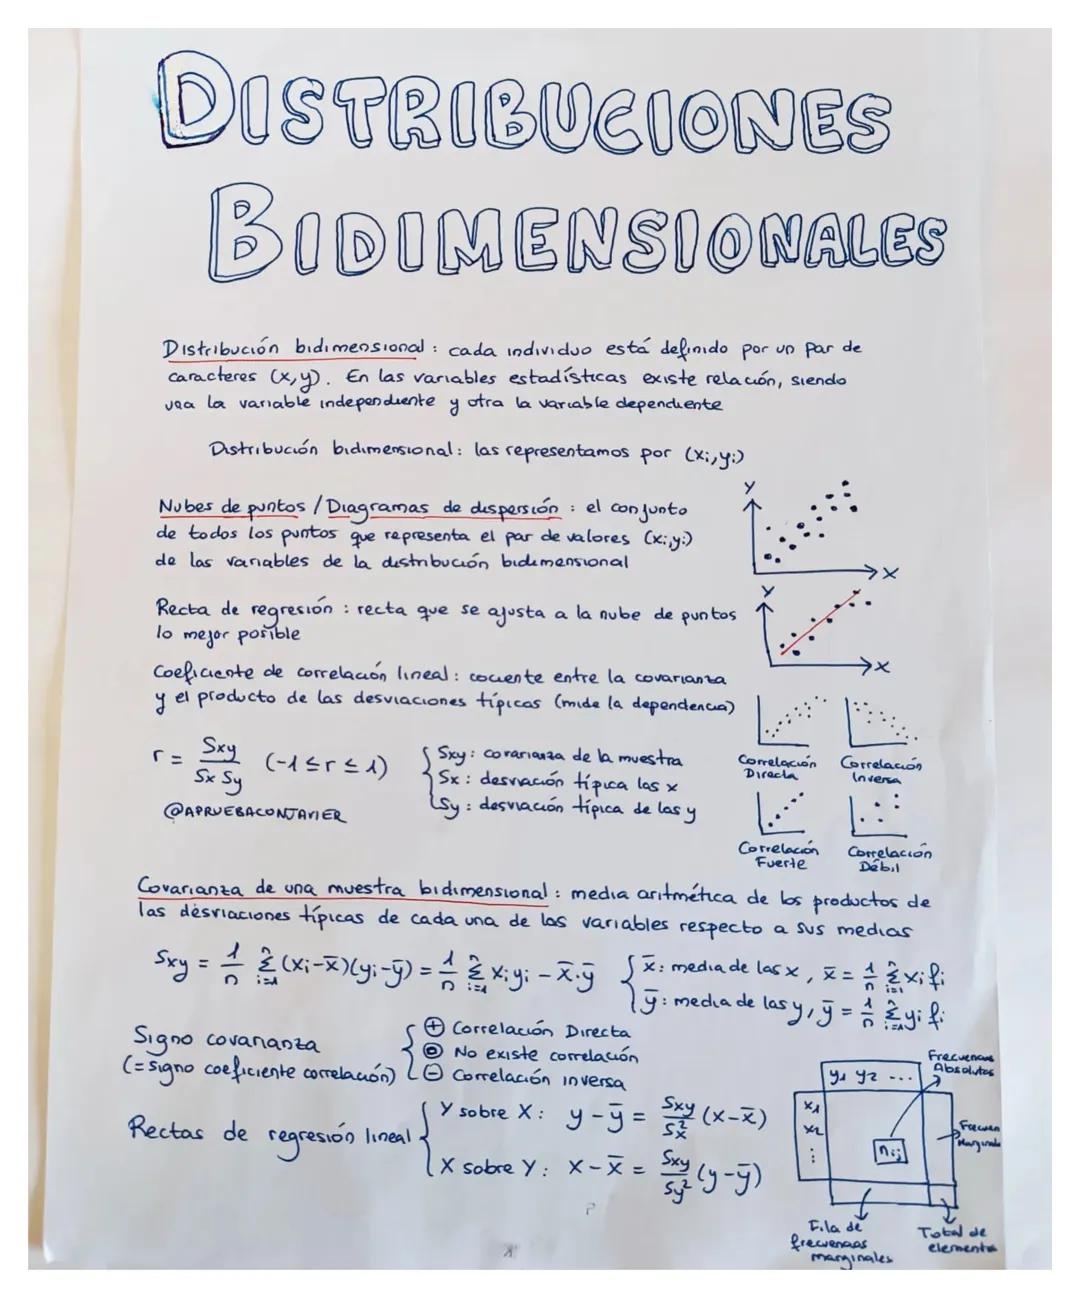 DISTRIBUCIONES
BIDIMENSIONALES
Distribución bidimensional : cada individuo está definido por un par de
caracteres (x,y). En las variables estadísticas existe relación, siendo
una la variable independiente y otra la variable dependiente
Distribución bidimensional: las representamos por (xi,yi)
Nubes de puntos / Diagramas de dispersión : el conjunto
de todos los puntos que representa el par de valores (xi,yi)
de las variables de la distribución bidimensional
y
x
Recta de regresión : recta que se ajusta a la nube de puntos
lo mejor posible
y
x
Coeficiente de correlación lineal : cociente entre la covarianza
y el producto de las desviaciones típicas (mide la dependencia)
r = Sxy / Sx Sy (-1 ≤ r ≤ 1)
Sxy : covarianza de la muestra
Sx : desviación típica las x
Sy : desviación típica de las y
@APRUEBACONJAVIER
Correlación Directa
Correlación Inversa
Correlación Fuerte
Correlación Débil
Covarianza de una muestra bidimensional : media aritmética de los productos de
las desviaciones típicas de cada una de las variables respecto a sus medias
Sxy = 1/n Σ i=1 n (xi-x̄)(yi-ȳ) = 1/n Σ i=1 n xi yi - x̄·ȳ
x̄ : media de las x , x̄ = 1/n Σ i=1 n xi fi
ȳ : media de las y , ȳ = 1/n Σ i=1 n yi fi
Signo covarianza
(=signo coeficiente correlación)
⊕ Correlación Directa
⓪ No existe correlación
⊖ Correlación inversa
Rectas de regresión lineal
Y sobre X : y - ȳ = Sxy / Sx² (x-x̄)
X sobre Y : x - x̄ = Sxy / Sy² (y-ȳ)
y1 y2 ...
x1
x2
⋮
nij
Frecuencias
Absolutas
Fila de
frecuencias
marginales
Total de